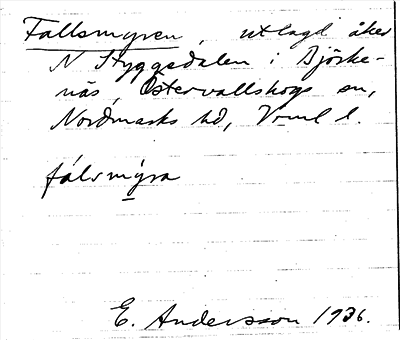 Fallsmyren, utlagd åker
N Styggedalen i Björke-
näs, Östervallskogs sn,
Nordmarks hd, Vrml l.
fálsmýra
E. Andersson 1936.